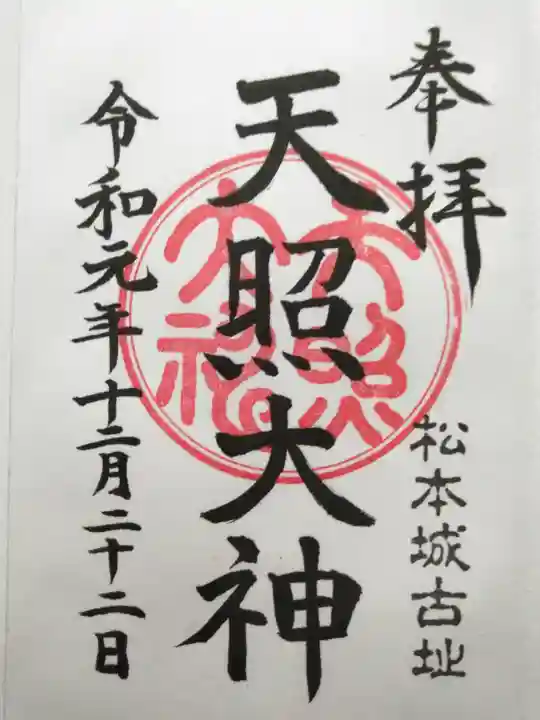 奉拝
松本城古址
天照大神
天照
大神
令和元年十二月二十二日